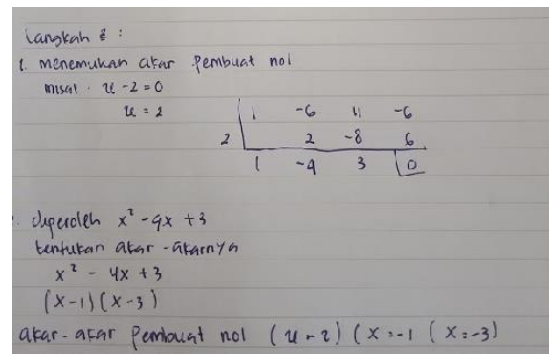 Langkah :
1. menemukan akar pembuat nol
misal . x - 2 = 0
x = 2
1 -6 11 -6
2 2 -8 6
1 -4 3 0
diperoleh x² - 4x + 3
tentukan akar - akarnya
x² - 4x + 3
(x-1)(x-3)
akar-akar pembuat nol (x - 2) (x = -1 ( x = -3)